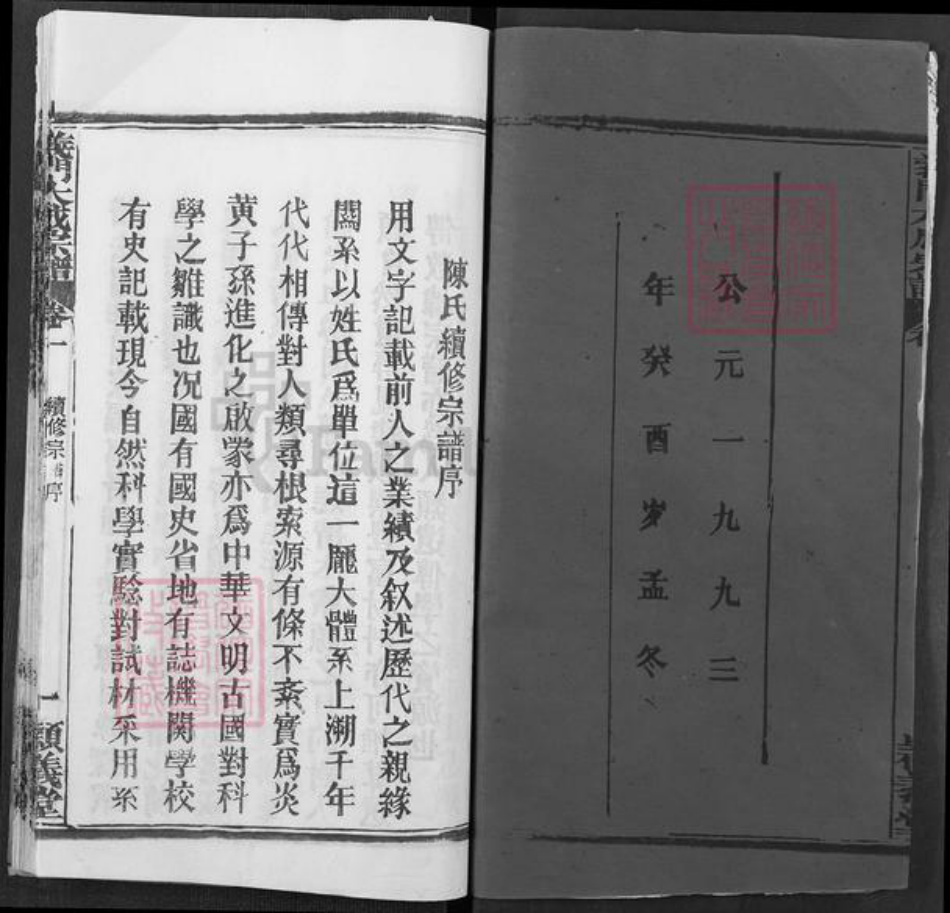 公元一九九三
年癸酉岁孟冬
陳氏續修宗譜序
用文字記載前人之業績及叙述歷代之親緣
關系以姓氏爲單位這一龐大體系上溯千年
代代相傳對人類尋根索源有條不紊實爲炎
黄子孫進化之啟蒙亦爲中華文明古國對科
學之雛識也况國有國史省地有誌機関學校
有史記載現今自然科學實驗對試材采用系
義門大成宗譜
卷一
續修宗譜序
一
穎義堂